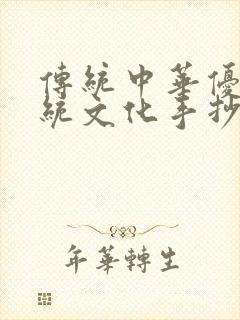 傳統中華優
統文化手抄
年華轉生